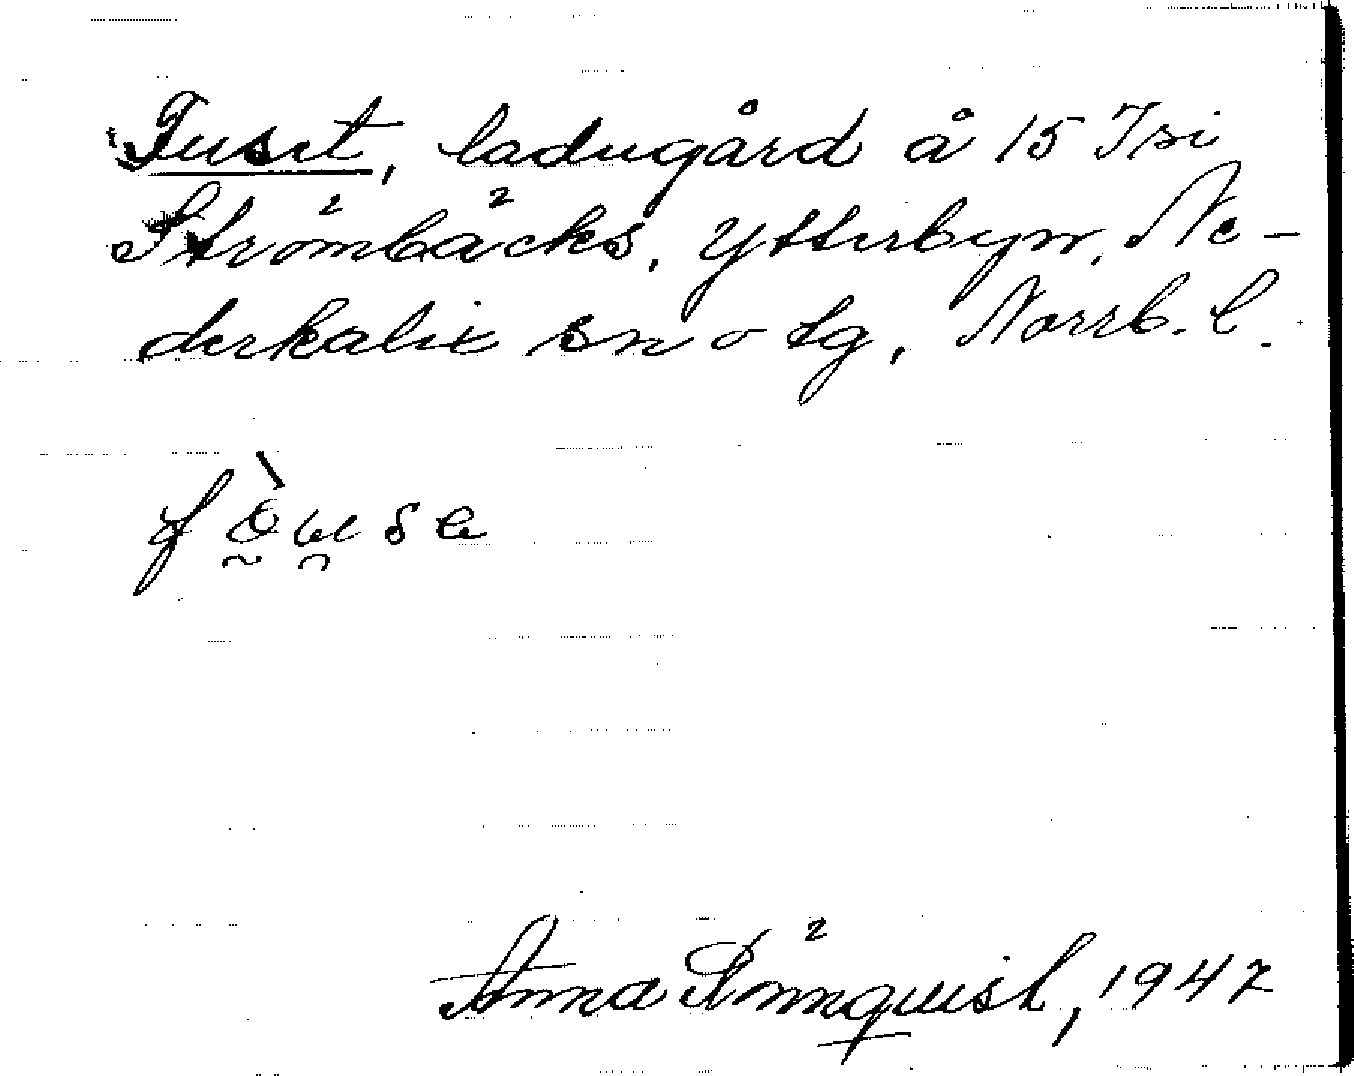 Fuset, ladugård å 15 Isi
Strömbäcks, Ytterbyn, Ne-
derkalix sn o tg, Norrb. l.
Anna Rönnquist, 1947